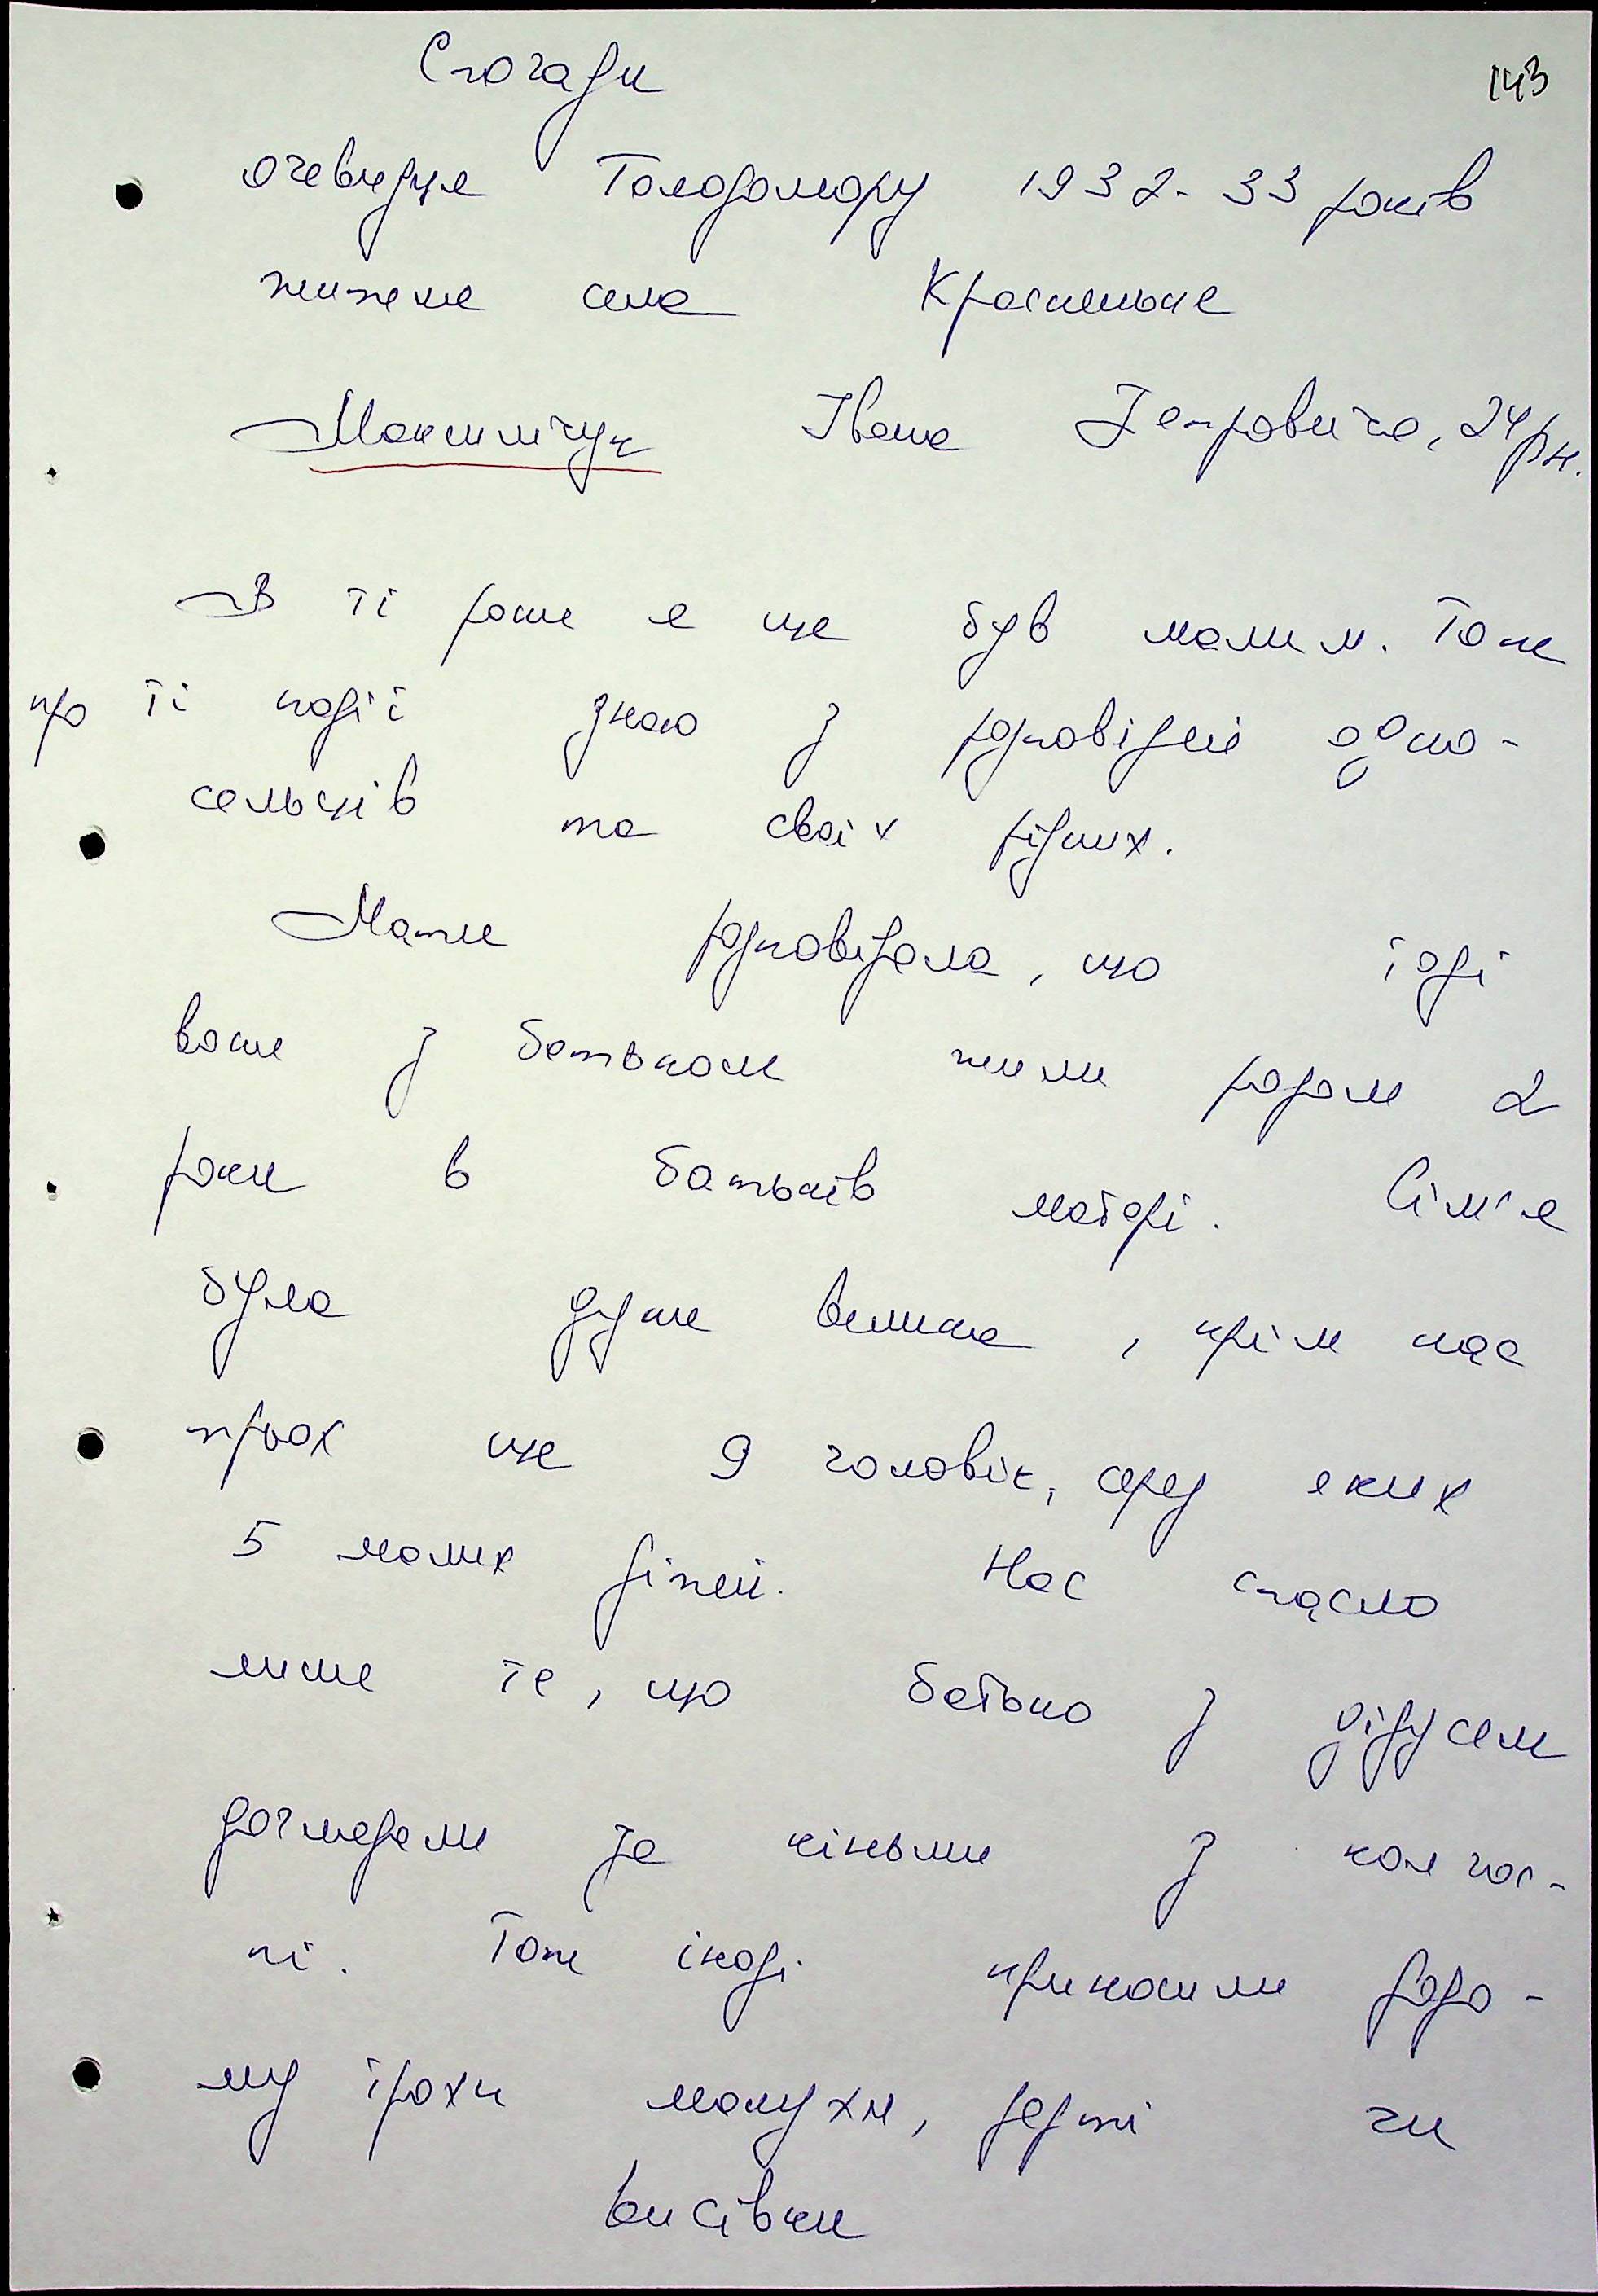 Спогади
143
очевидця Голодомору 1932-33 років
жителя села Красилівка
Максимчук Івана Петровича, 24 р.н.
В ті роки я ще був малим. Тож
про ті події знаю з розповідей одно-
сельців та своїх рідних.
Мати розповідала, що тоді
вони з батьком жили разом 2
роки в батьків матері. Сім'я
була дуже велика, крім нас
трьох ще 9 чоловік, серед яких
5 малих дітей. Нас спасло
лише те, що батько з дідусем
доглядали за кіньми з колгос-
пі. Тож іноді приносили додо-
му трохи макухи, дерті чи
висівки